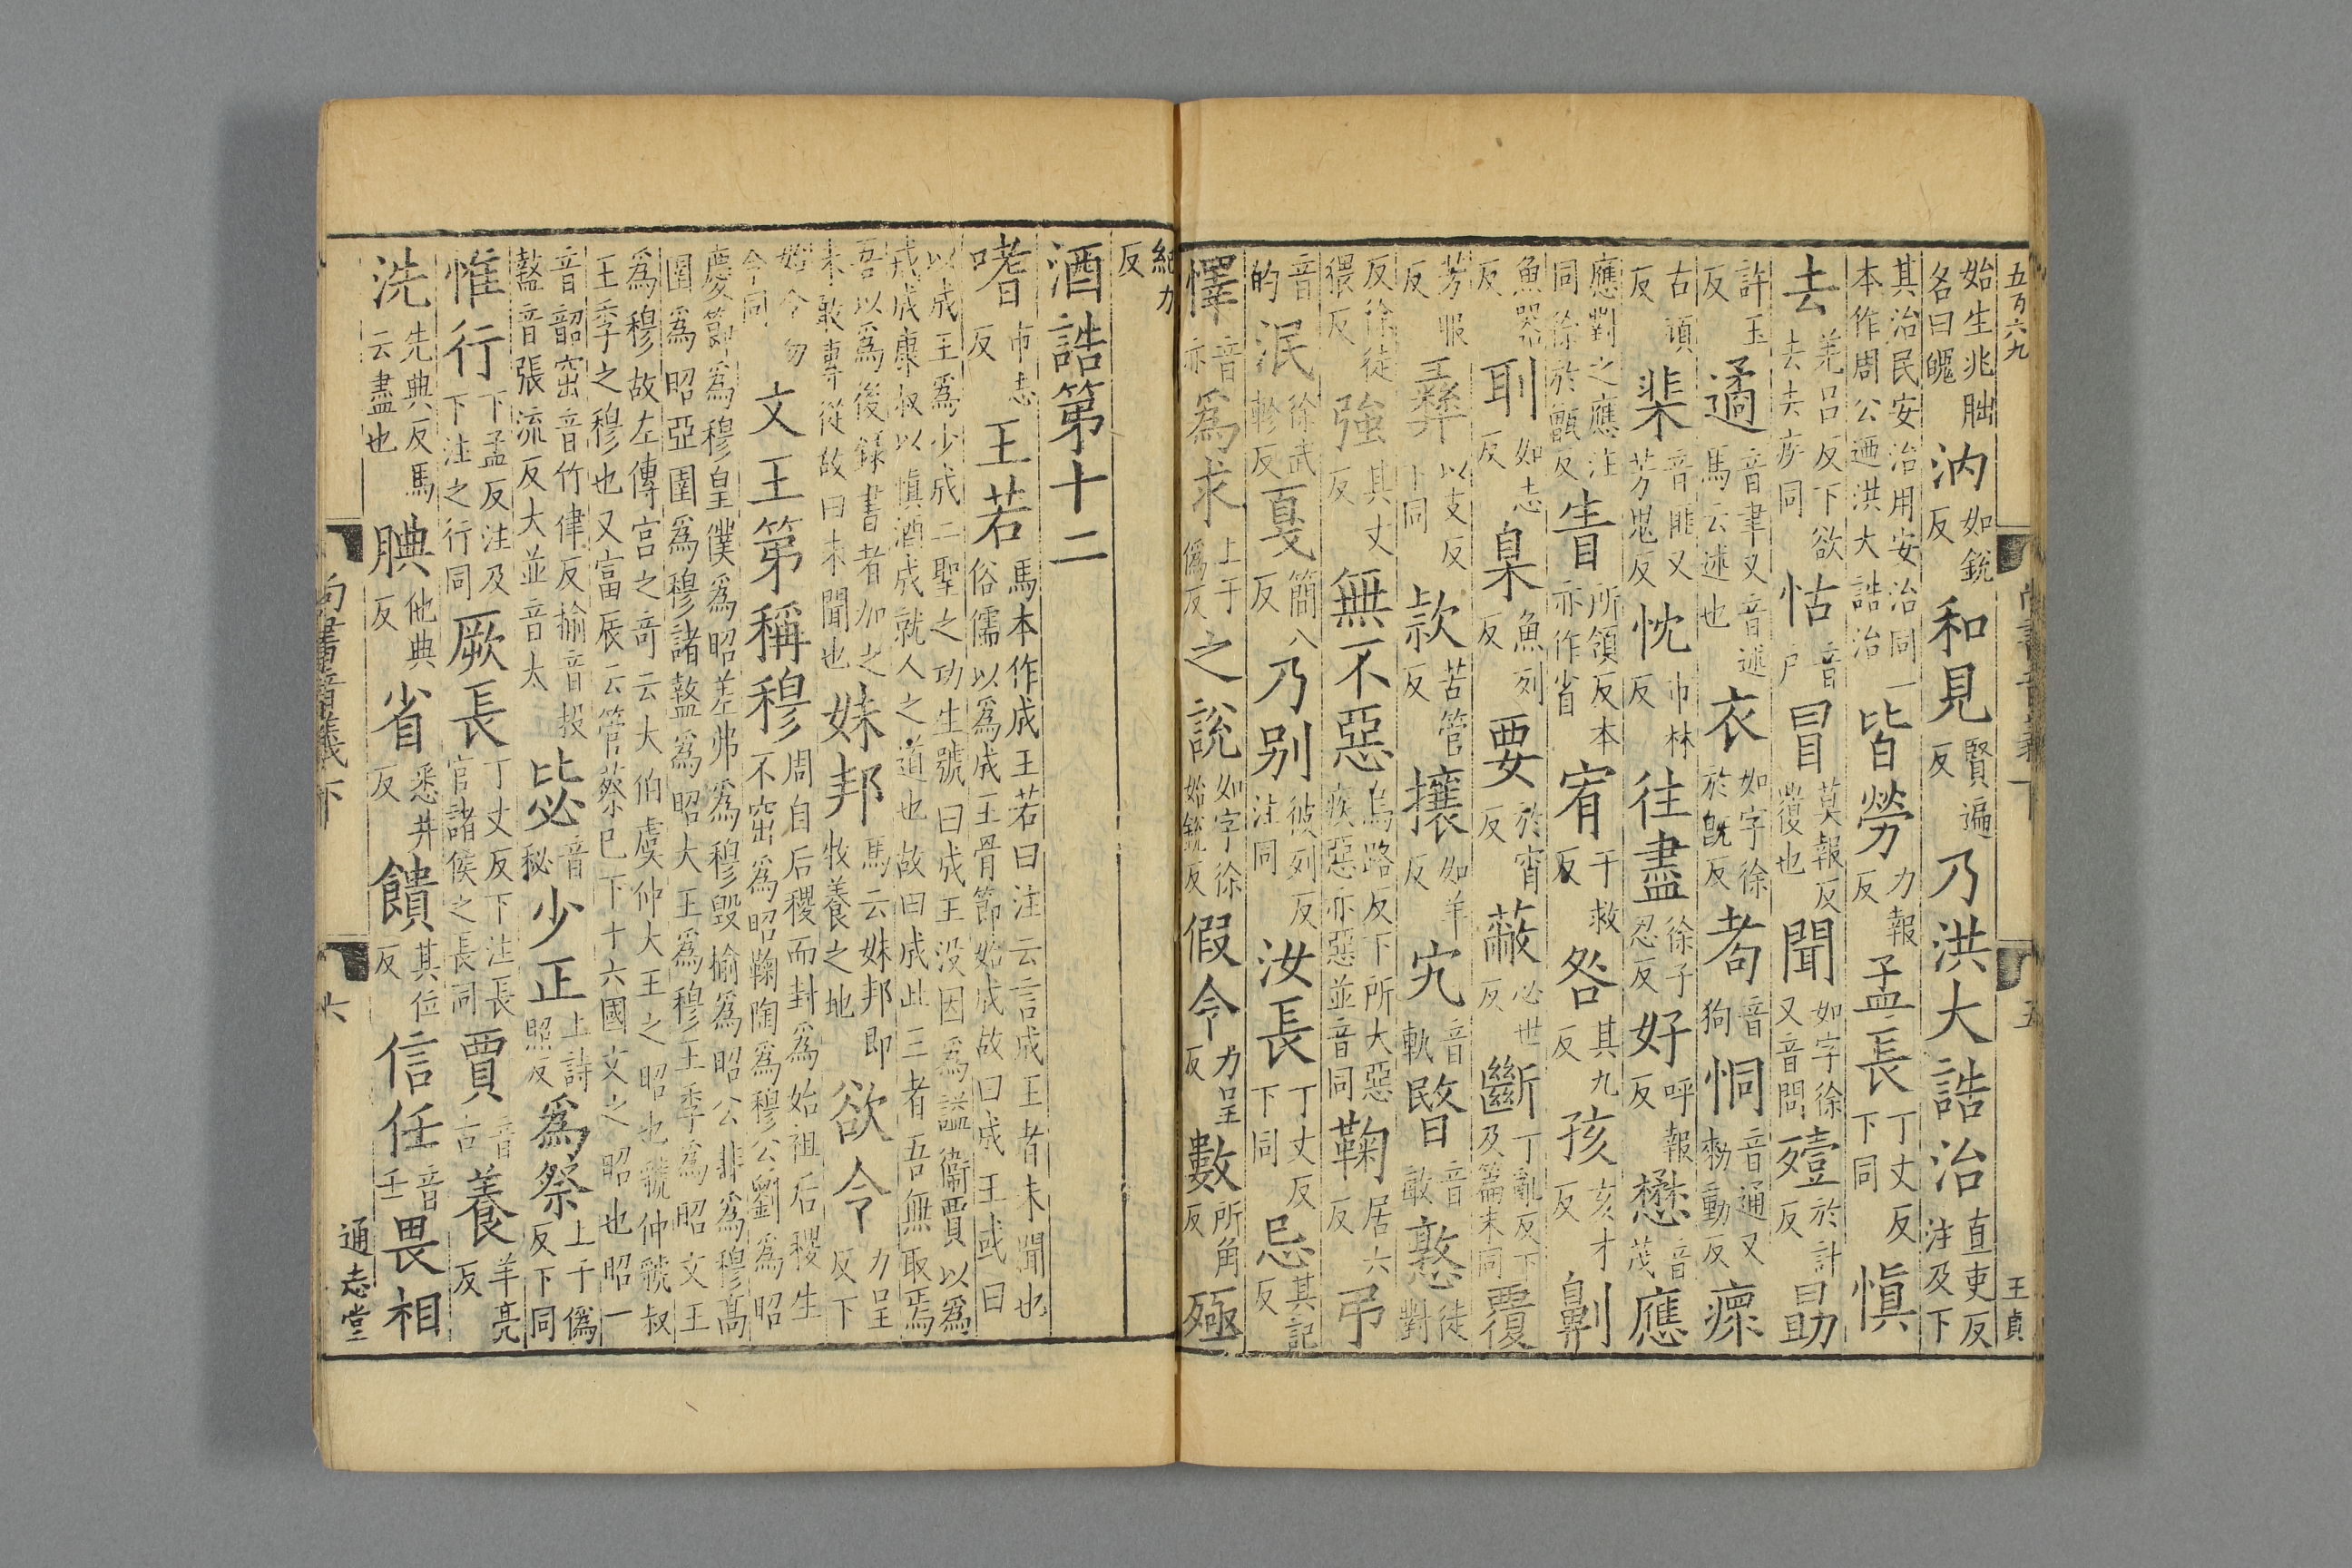 五百六九
五
王貞
始生兆朏名曰魄汭如銳反和見賢遍反乃洪大誥治直吏反注及下
其治民安治用安治同一本作周公迺洪大誥治皆勞力報反孟長丁丈反下同慎
去羌呂反下欲去去疾同怙音戶冒莫報反覆也聞如字徐又音問殪於計反勖
許玉反遹音聿又音述馬云述也衣如字徐於旣反耇音狗恫音通又勑動反瘝
古頑反棐音匪又芳鬼反忱市林反往盡徐子忍反好呼報反懋音茂應
應對之應注同徐於甑反眚所領反本亦作省宥于救反咎其九反孩亥才反劓
魚器反刵如志反臬魚列反要於宵反蔽必世反斷丁亂反下及篇末同覆
芳服反彝以支反下同款苦管反攘如羊反宄音軌暋音敢憝徒對
反徐徒猥反強其丈反無不惡烏路反下所大惡疾惡亦惡並音同鞠居六反弔
音的泯徐武軫反戛簡八反乃别彼列反注同汝長丁丈反下同忌其記反
懌音亦爲求上于僞反之說如字徐始銳反假令力呈反數所角反殛
紀力反
酒誥第十二
嗜市志反王若馬本作成王若曰注云言成王者未聞也俗儒以爲成王骨節始成故曰成王或曰
以成王爲少成二聖之功生號曰成王没因爲謚衞賈以爲戒成康叔以慎酒成就人之道也故曰成此三者吾無取焉
吾以爲後錄書者加之未敢專從故曰未聞也妹邦馬云妹邦即牧養之地欲令力呈反下
始令勿令同文王第稱穆周自后稷而封爲始祖后稷生不窋爲昭鞠陶爲穆公劉爲昭
慶節爲穆皇僕爲昭差弗爲穆毀揄爲昭公非爲穆高圉爲昭亞圉爲穆諸盩爲昭大王爲穆王季爲昭文王
爲穆故左傳宫之奇云大伯虞仲大王之昭也虢仲虢叔王季之穆也又富辰云管蔡已下十六國文之昭也昭一
音韶窋音竹律反揄音投盩音張流反大並音太毖音秘少正上詩照反爲祭上于僞反下同
惟行下孟反注及下注之行同厥長丁丈反下注長官諸侯之長同賈音古養羊亮反
洗先典反馬云盡也腆他典反省悉井反饋其位反信任音壬畏相
尚書音義下
六
通志堂